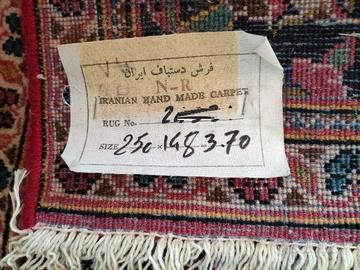 فرش دستباف ایران
N-R
IRANIAN HAND MADE CARPET
RUG No.
SIZE 250 × 148 - 3.70